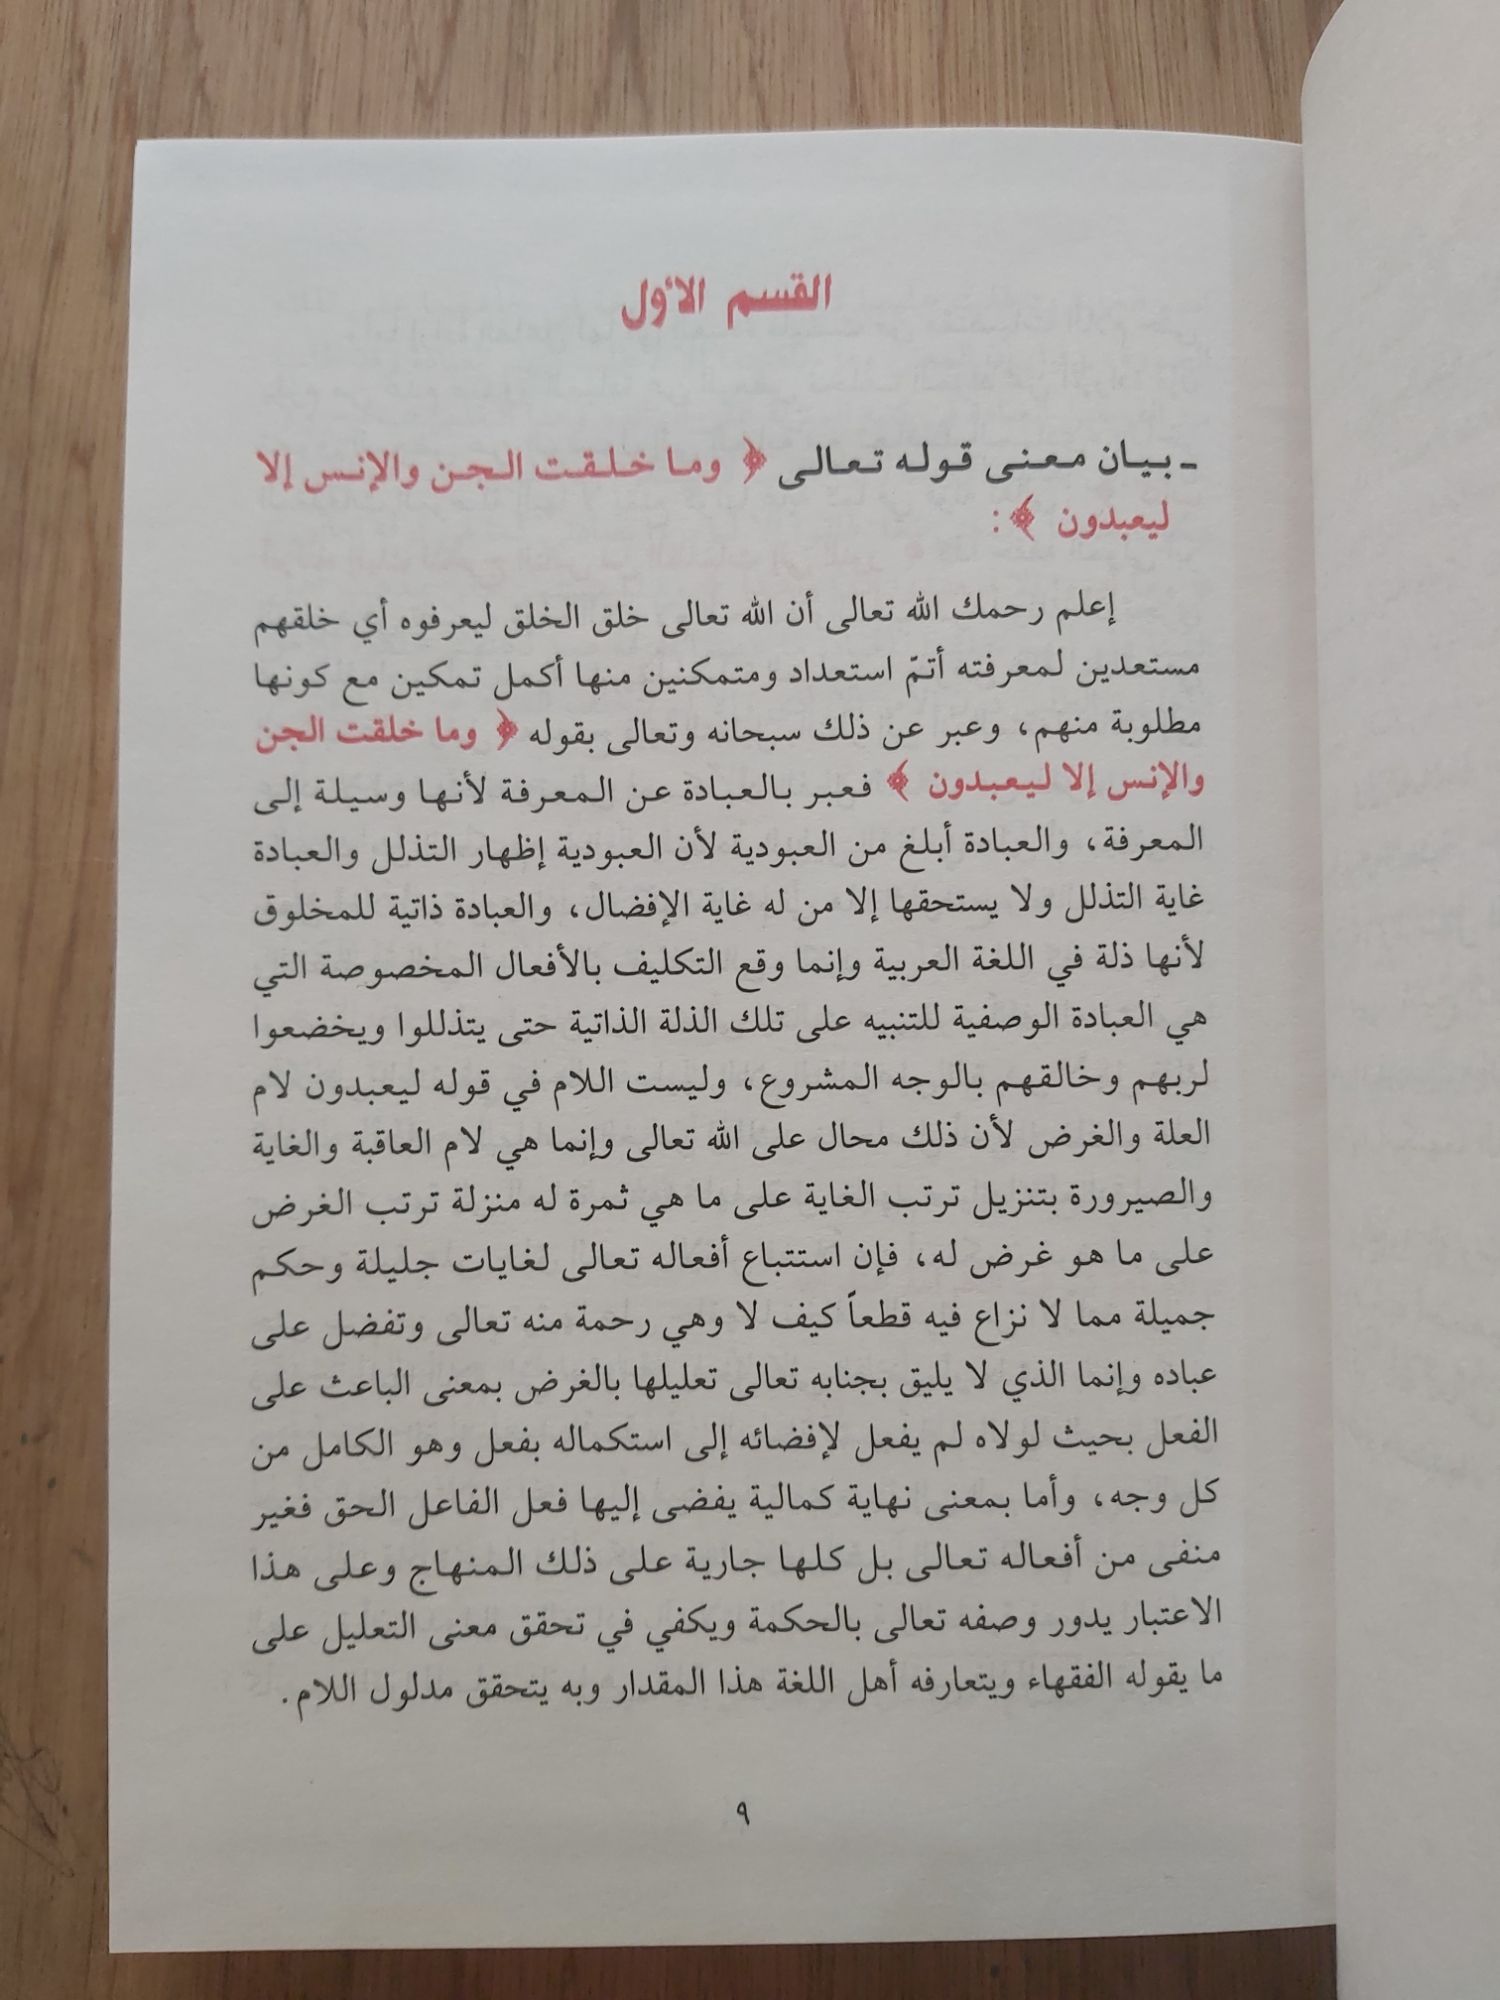 القسم الأول
ـ بيان معنى قوله تعالى ﴿ وما خلقت الجن والإنس إلا
ليعبدون ﴾ :
إعلم رحمك الله تعالى أن الله تعالى خلق الخلق ليعرفوه أي خلقهم
مستعدين لمعرفته أتمّ استعداد ومتمكنين منها أكمل تمكين مع كونها
مطلوبة منهم، وعبر عن ذلك سبحانه وتعالى بقوله ﴿ وما خلقت الجن
والإنس إلا ليعبدون ﴾ فعبر بالعبادة عن المعرفة لأنها وسيلة إلى
المعرفة، والعبادة أبلغ من العبودية لأن العبودية إظهار التذلل والعبادة
غاية التذلل ولا يستحقها إلا من له غاية الإفضال، والعبادة ذاتية للمخلوق
لأنها ذلة في اللغة العربية وإنما وقع التكليف بالأفعال المخصوصة التي
هي العبادة الوصفية للتنبيه على تلك الذلة الذاتية حتى يتذللوا ويخضعوا
لربهم وخالقهم بالوجه المشروع، وليست اللام في قوله ليعبدون لام
العلة والغرض لأن ذلك محال على الله تعالى وإنما هي لام العاقبة والغاية
والصيرورة بتنزيل ترتب الغاية على ما هي ثمرة له منزلة ترتب الغرض
على ما هو غرض له، فإن استتباع أفعاله تعالى لغايات جليلة وحكم
جميلة مما لا نزاع فيه قطعاً كيف لا وهي رحمة منه تعالى وتفضل على
عباده وإنما الذي لا يليق بجنابه تعالى تعليلها بالغرض بمعنى الباعث على
الفعل بحيث لولاه لم يفعل لإفضائه إلى استكماله بفعل وهو الكامل من
كل وجه، وأما بمعنى نهاية كمالية يفضى إليها فعل الفاعل الحق فغير
منفى من أفعاله تعالى بل كلها جارية على ذلك المنهاج وعلى هذا
الاعتبار يدور وصفه تعالى بالحكمة ويكفي في تحقق معنى التعليل على
ما يقوله الفقهاء ويتعارفه أهل اللغة هذا المقدار وبه يتحقق مدلول اللام.
٩